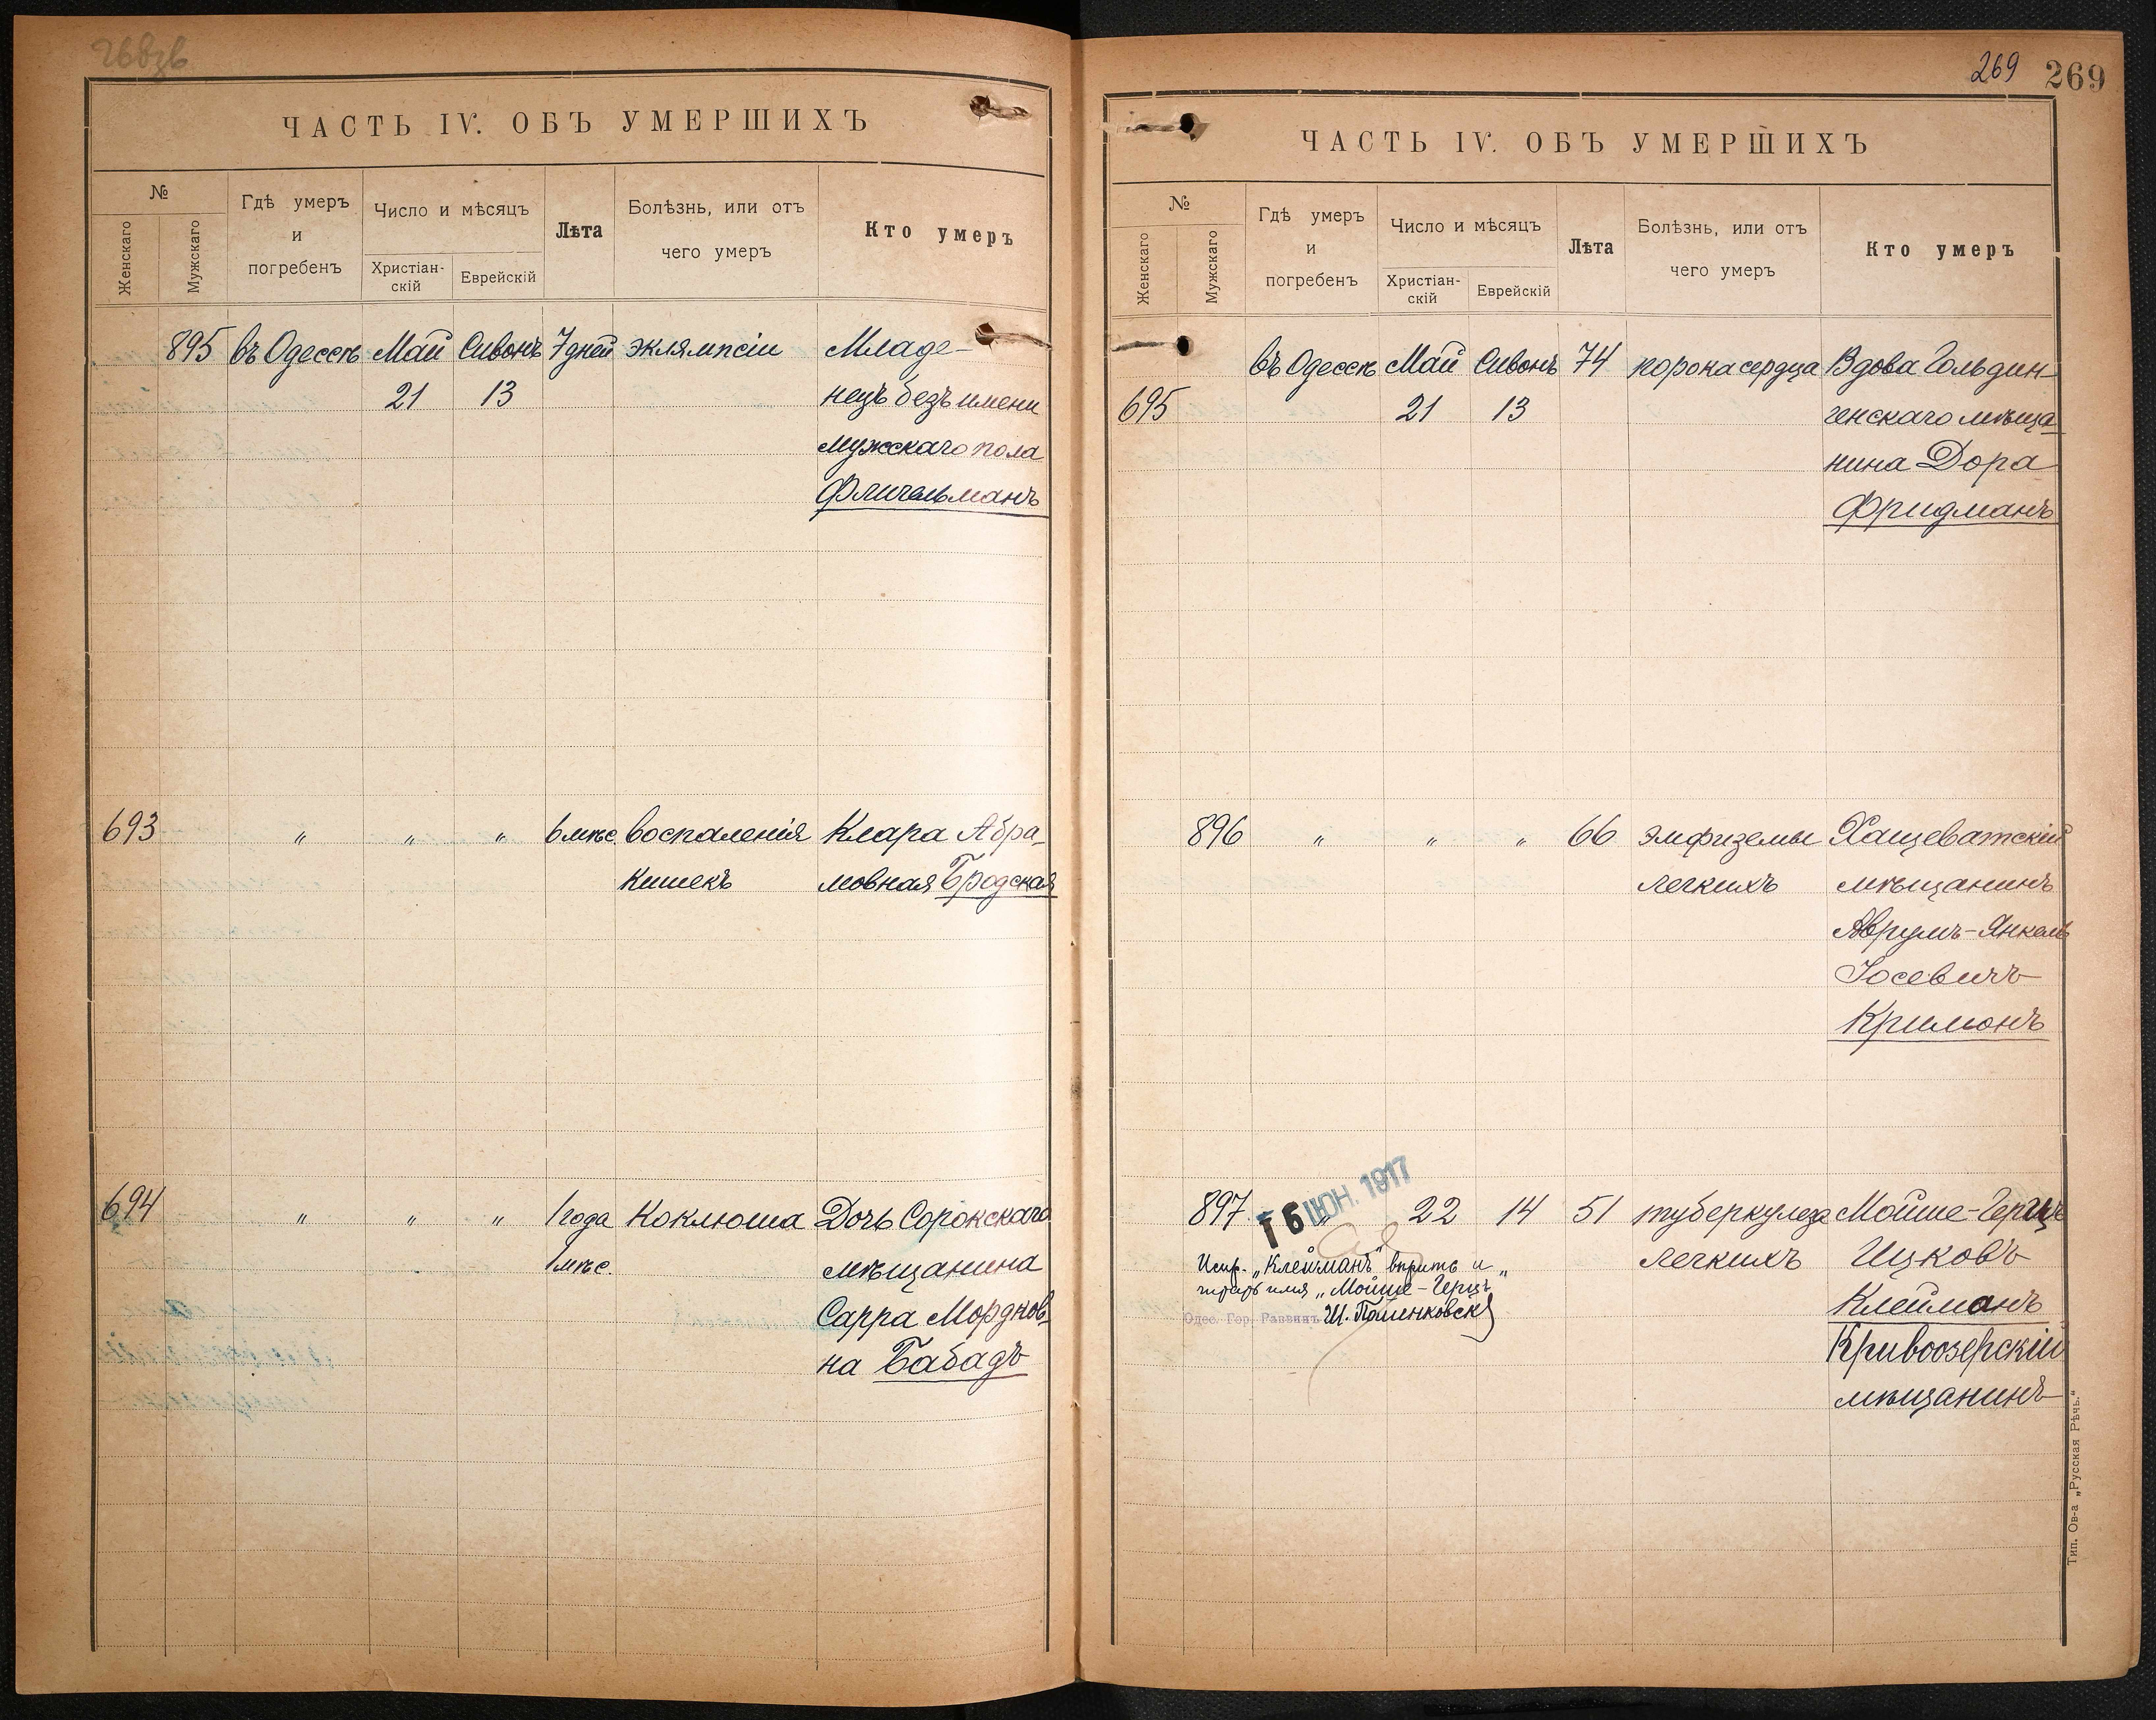 ЧАСТЬ IV. ОБЪ УМЕРШИХЪ
№
Женскаго
Мужскаго
Гдѣ умеръ
и
погребенъ
Число и мѣсяцъ
Христіан-
скій
Еврейскій
Лѣта
Болѣзнь, или отъ
чего умеръ
Кто умеръ
895 въ Одессѣ Май Сивонъ 7 дней эклямпсіи Младе-
21 13 нецъ безъ имени
мужскаго пола
Фличельманъ
693 " " " 6 мѣс. воспаленія Клара Абра-
Кишекъ мовная Бродская
694 " " " 1 года Коклюша Дочь Сорокскаго
1 мѣс. мѣщанина
Сарра Мордков-
на Бабадъ
269 269
ЧАСТЬ IV. ОБЪ УМЕРШИХЪ
№
Женскаго
Мужскаго
Гдѣ умеръ
и
погребенъ
Число и мѣсяцъ
Христіан-
скій
Еврейскій
Лѣта
Болѣзнь, или отъ
чего умеръ
Кто умеръ
въ Одессѣ Май Сивонъ 74 порока сердца Вдова Гольдин-
695 21 13 генскаго мѣща-
нина Дора
Фридманъ
896 " " " 66 эмфиземы Хащеватскій
легкихъ мѣщанинъ
Аврумъ-Янкель
Іосевичъ
Кримонъ
16 ІЮН. 1917
897 " 22 14 51 туберкулеза Мойше-Герцъ
легкихъ Ицковъ
Клейманъ
Кривоозерскій
мѣщанинъ
Испр. "Клейманъ" вѣрить и
имя "Мойше-Герцъ"
Одес. Гор. Раввинъ Ш. Полинковск
Тип. Ов-а „Русская Рѣчь."